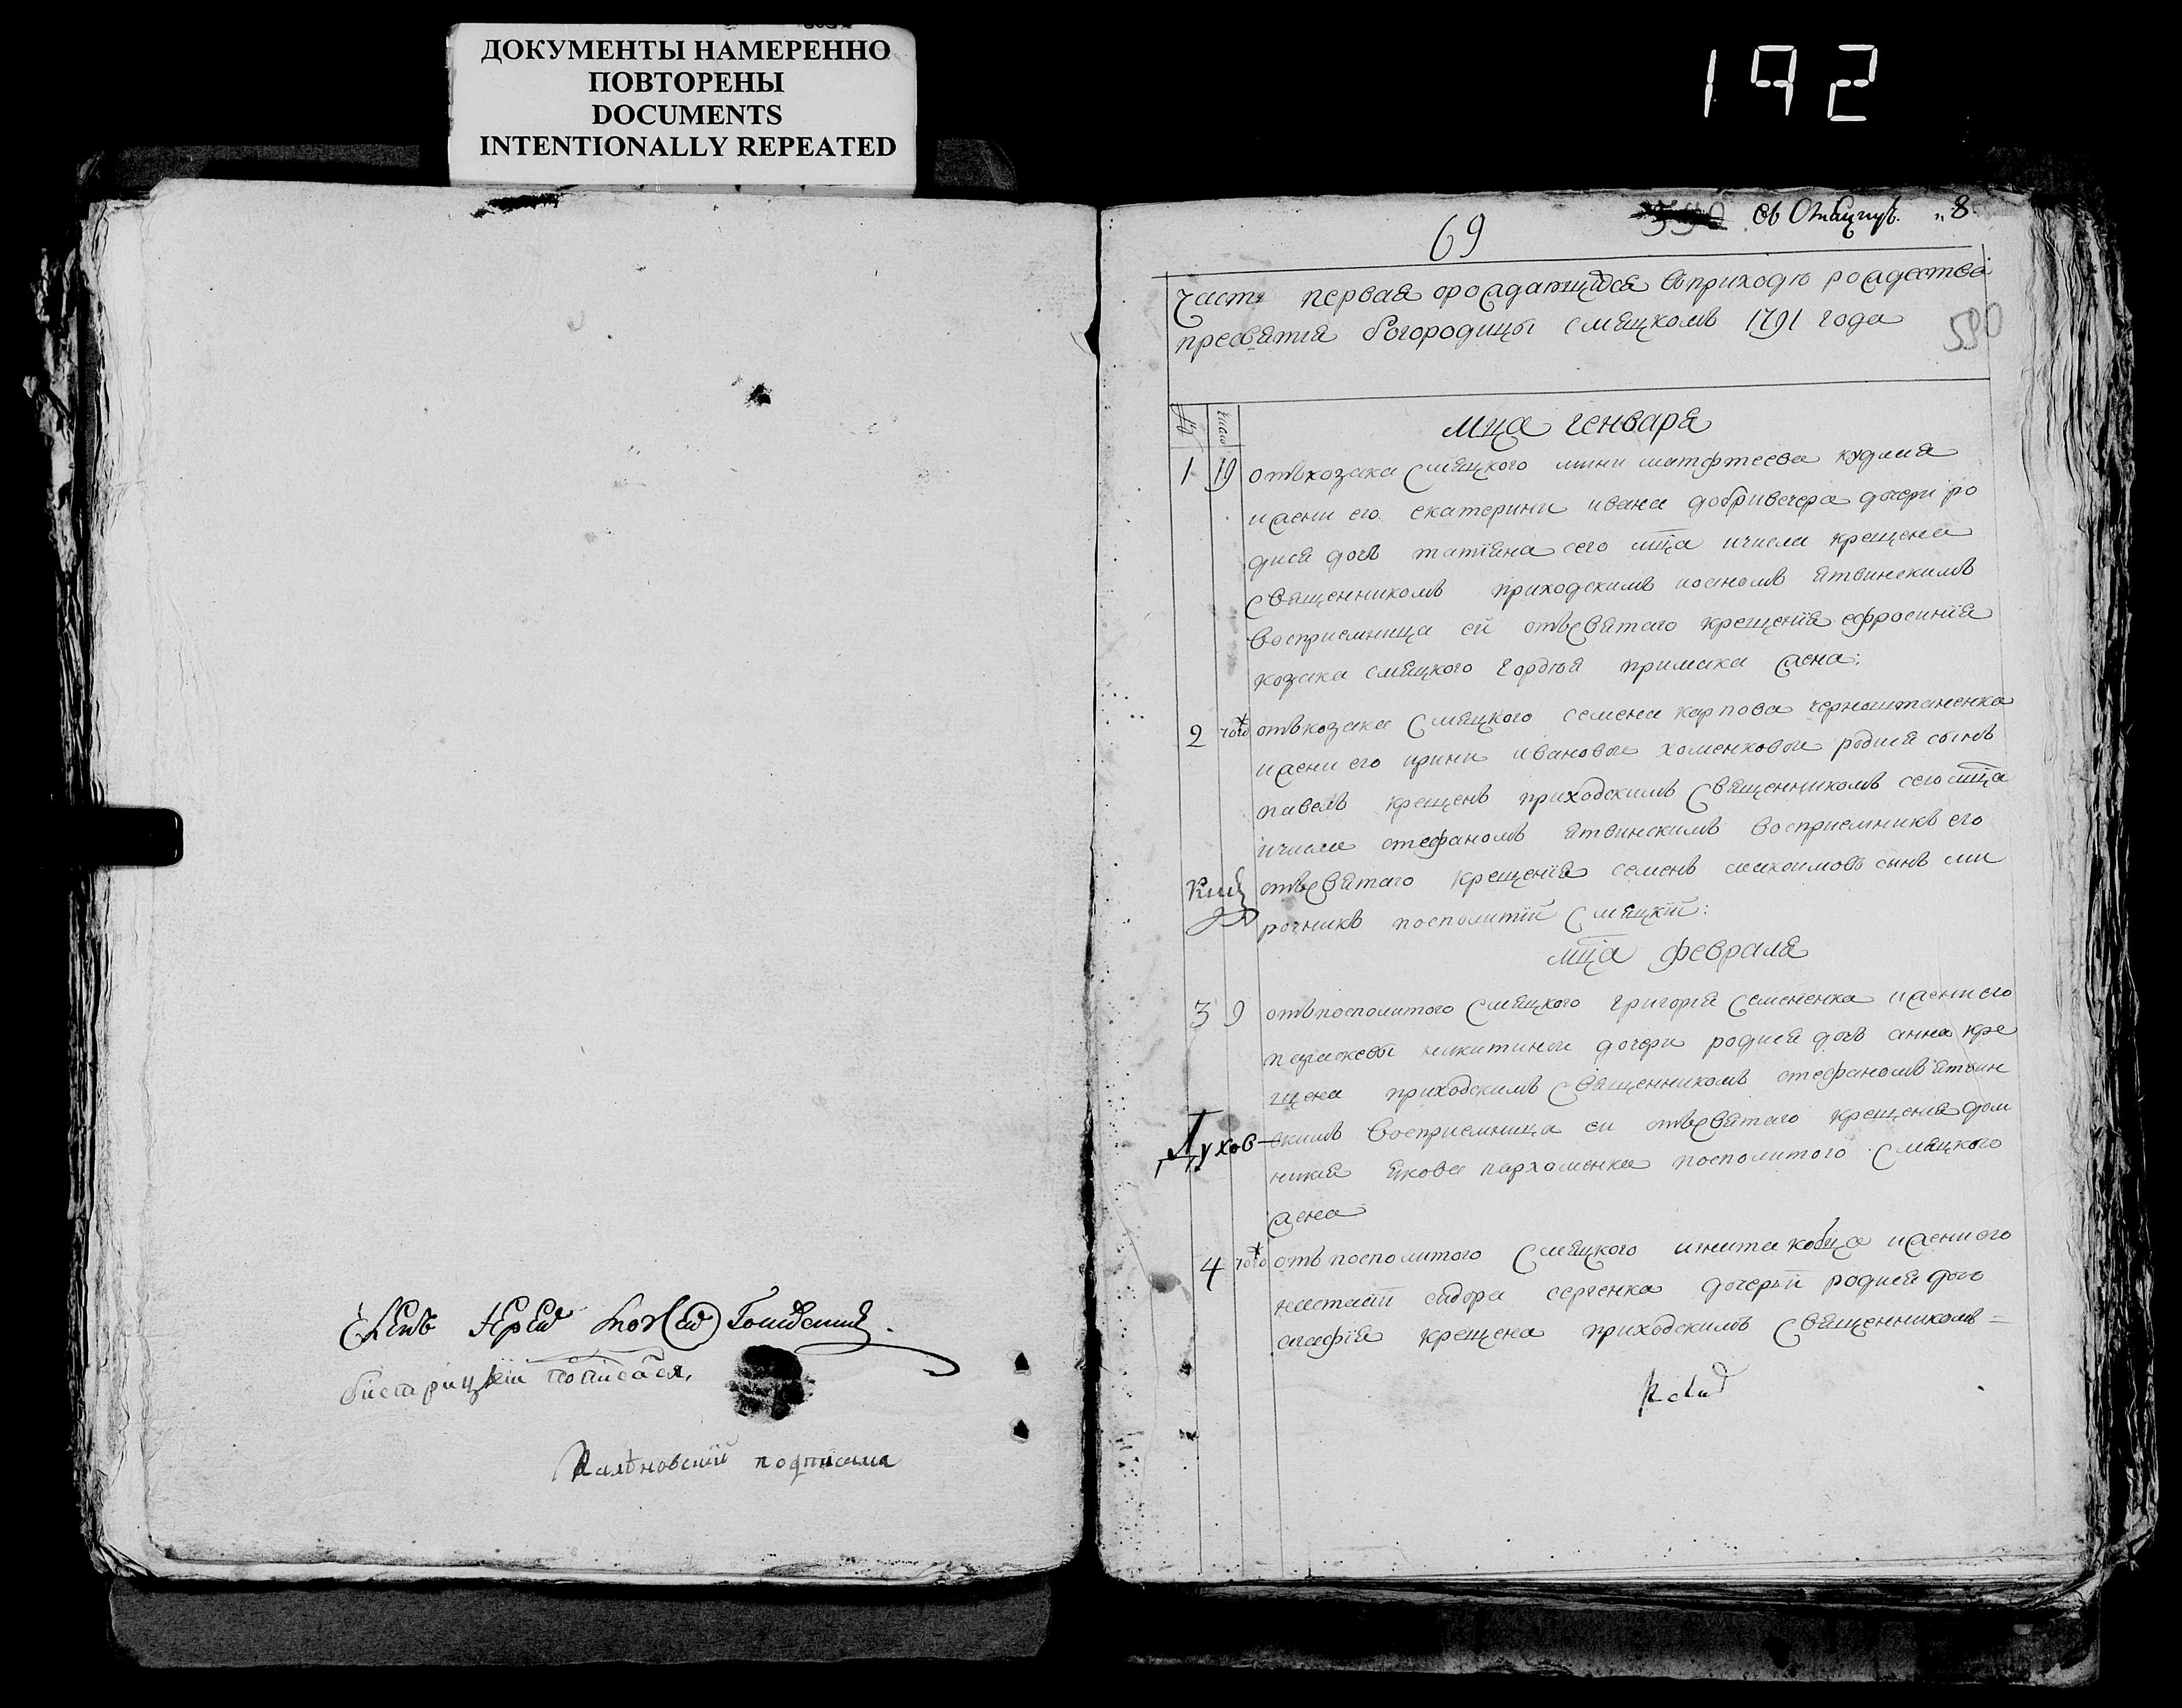 ДОКУМЕНТЫ НАМЕРЕННО
ПОВТОРЕНЫ
DOCUMENTS
INTENTIONALLY REPEATED
192
бистрицкїи
подписала
69
8
часть первая ѡрождающихся въприходѣ рождества
590
пресвятїя богородицы смяцкомъ 1791 года
число
мца генваря
1 19 отъкозака смяцкого мини матфтеева кудмая
ижени его екатерини ивана добривечера дочери ро
дися дочь татїяна сего мца ичисла крещена
священникомъ приходскимъ иоаномъ ятвинскимъ
восприемница ей отъсвятаго крещенїя ефросинїя
козака смяцкого гордѣя примака жена:
2 того отъкозака смяцкого семена карпова черноштаненка
ижени его ирини ивановои хоменковои родися сынъ
павелъ крещенъ приходскимъ священникомъ сего мца
ичисла стефаномъ ятвинскимъ восприемникъ его
отъсвятаго крещенїя семенъ максимовъ сынъ ми
рочникъ посполитїй смяцкїй:
мца февраля
3 9 отъпосполитого смяцкого григорїя семененка ижени его
параскевы никитиной дочери родися дочь анна кре
щена приходскимъ священникомъ стефаномъ ятвин
Духов
скимъ восприемница еи отъсвятаго крещенїя дом
никїя якова пархоменка посполитого смяцкого
жена
4 того отъ посполитого смяцкого игната кобца ижени его
настасїи сидора сергенка дочерїи родися дочь
агафїя крещена приходскимъ священникомъ